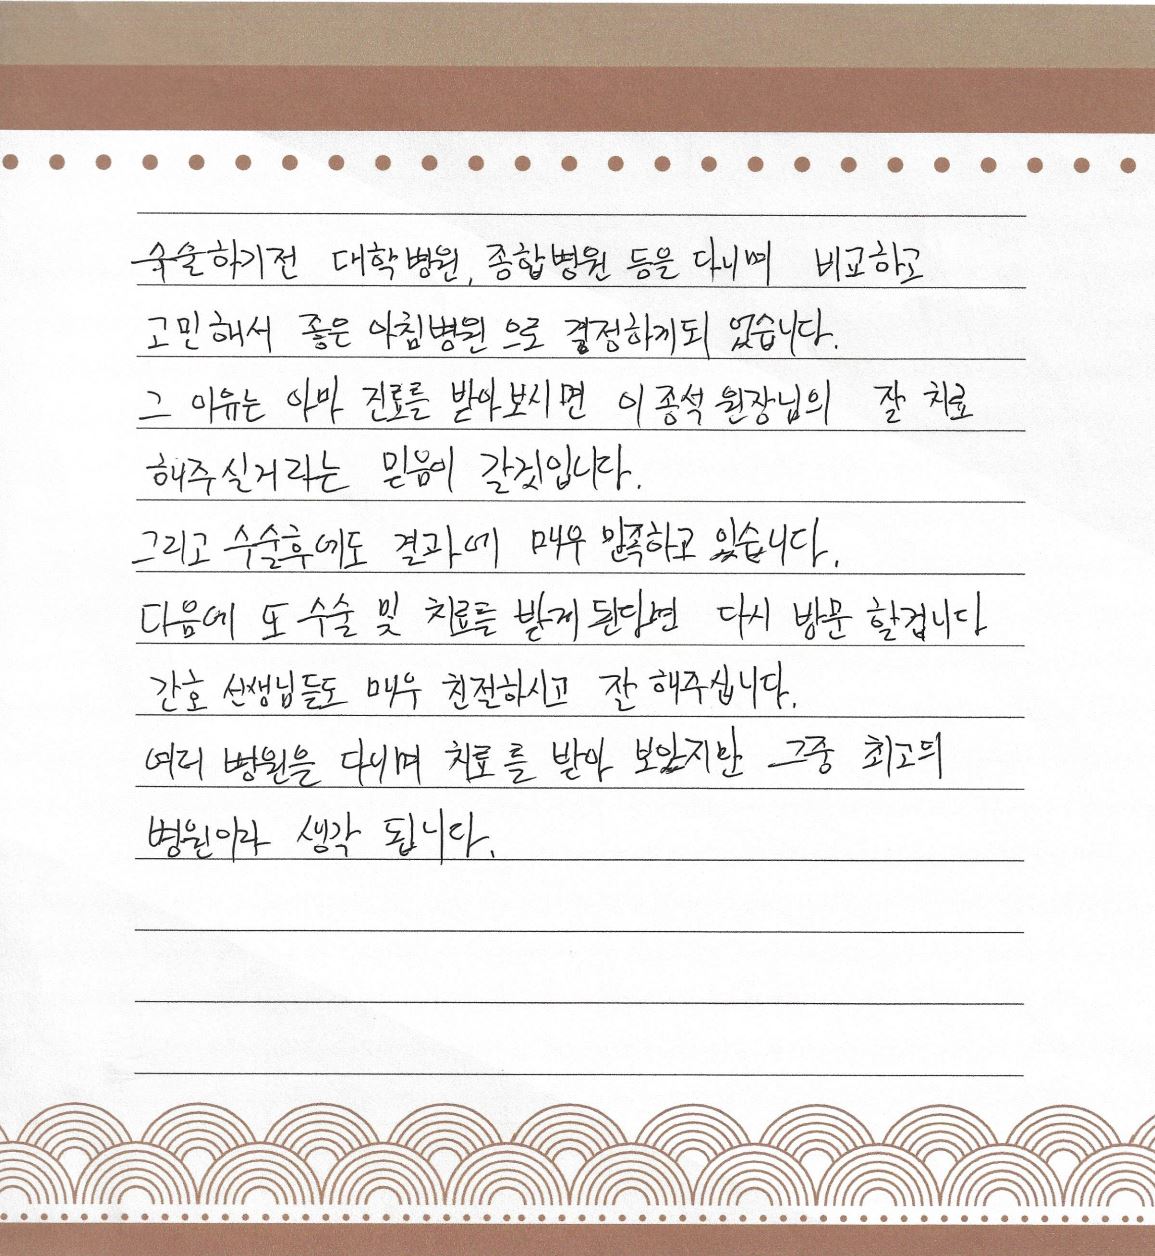 수술하기전 대학병원, 종합병원 등을 다니며 비교하고
고민해서 좋은아침병원 으로 결정하게되 었습니다.
그 이유는 아마 진료를 받아보시면 이종석 원장님의 잘 치료
해주실거라는 믿음이 갈것입니다.
그리고 수술후에도 결과에 매우 만족하고 있습니다.
다음에 또 수술 및 치료를 받게 된다면 다시 방문 할겁니다
간호 선생님들도 매우 친절하시고 잘 해주십니다.
여러 병원을 다니며 치료를 받아 보았지만 그중 최고의
병원이라 생각 됩니다.